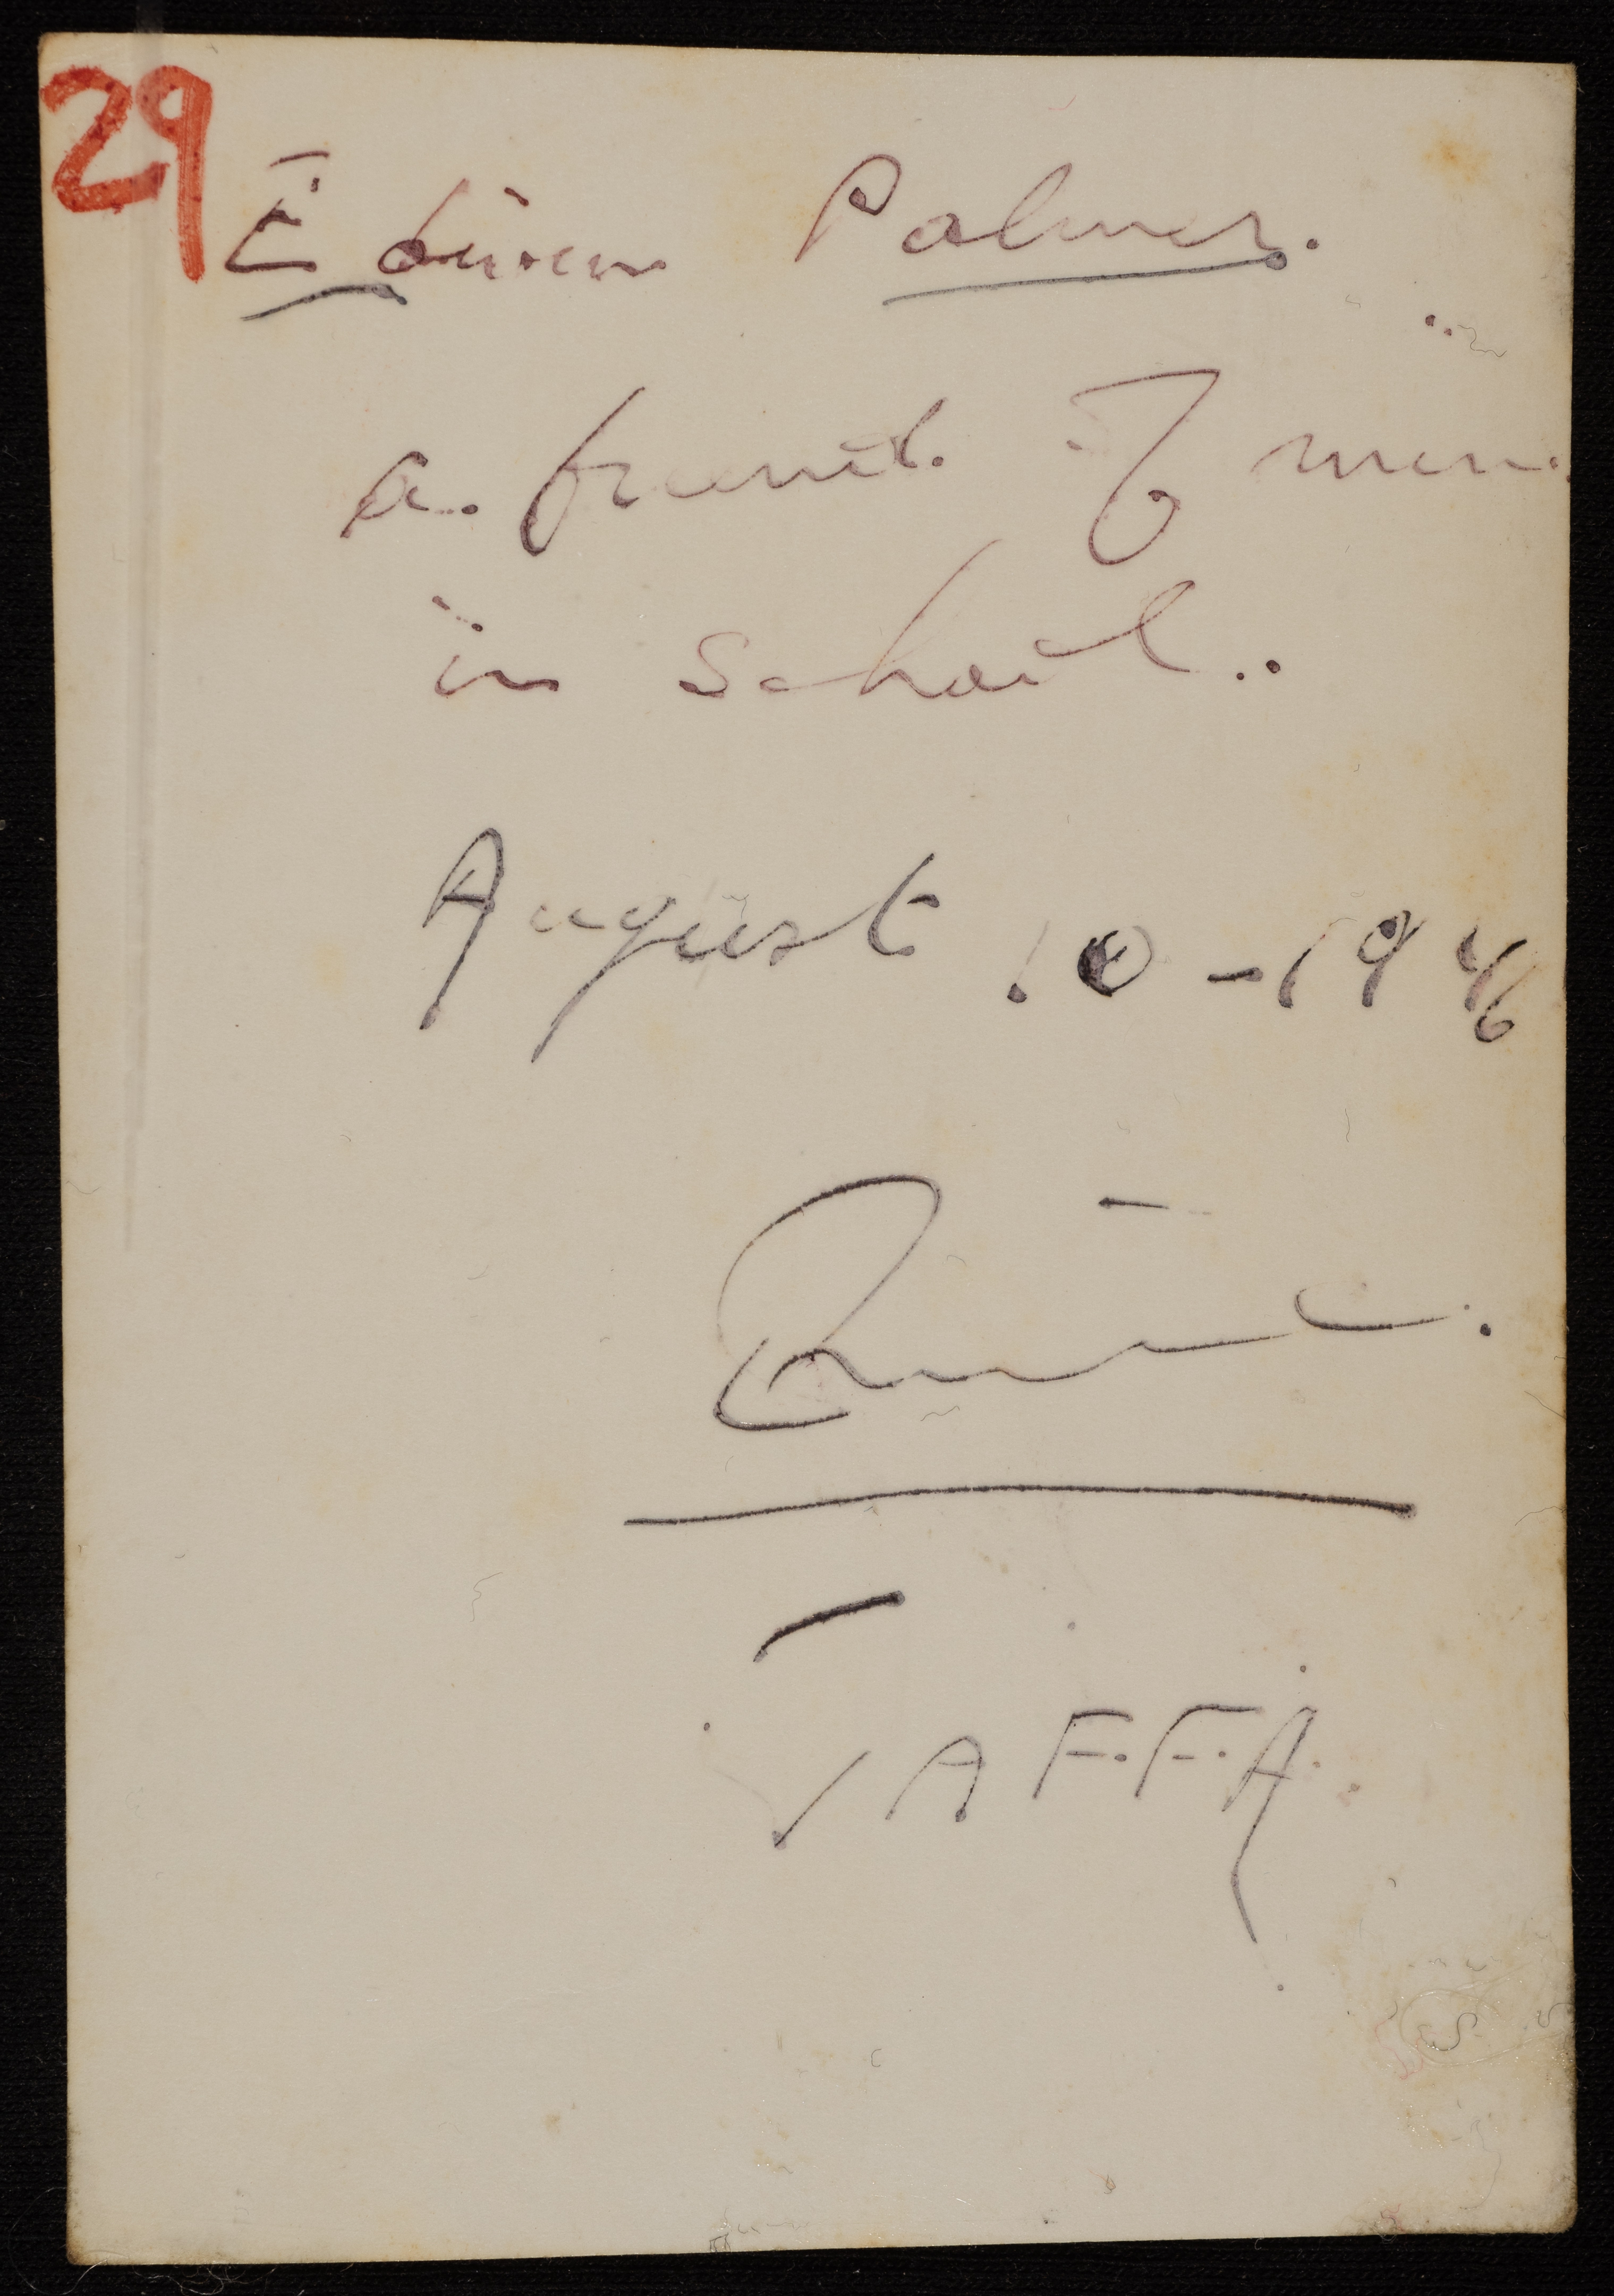 29
Edwin Palmer.
a. friend of mine.
in School..
August 10 - 1946
JAFFA.